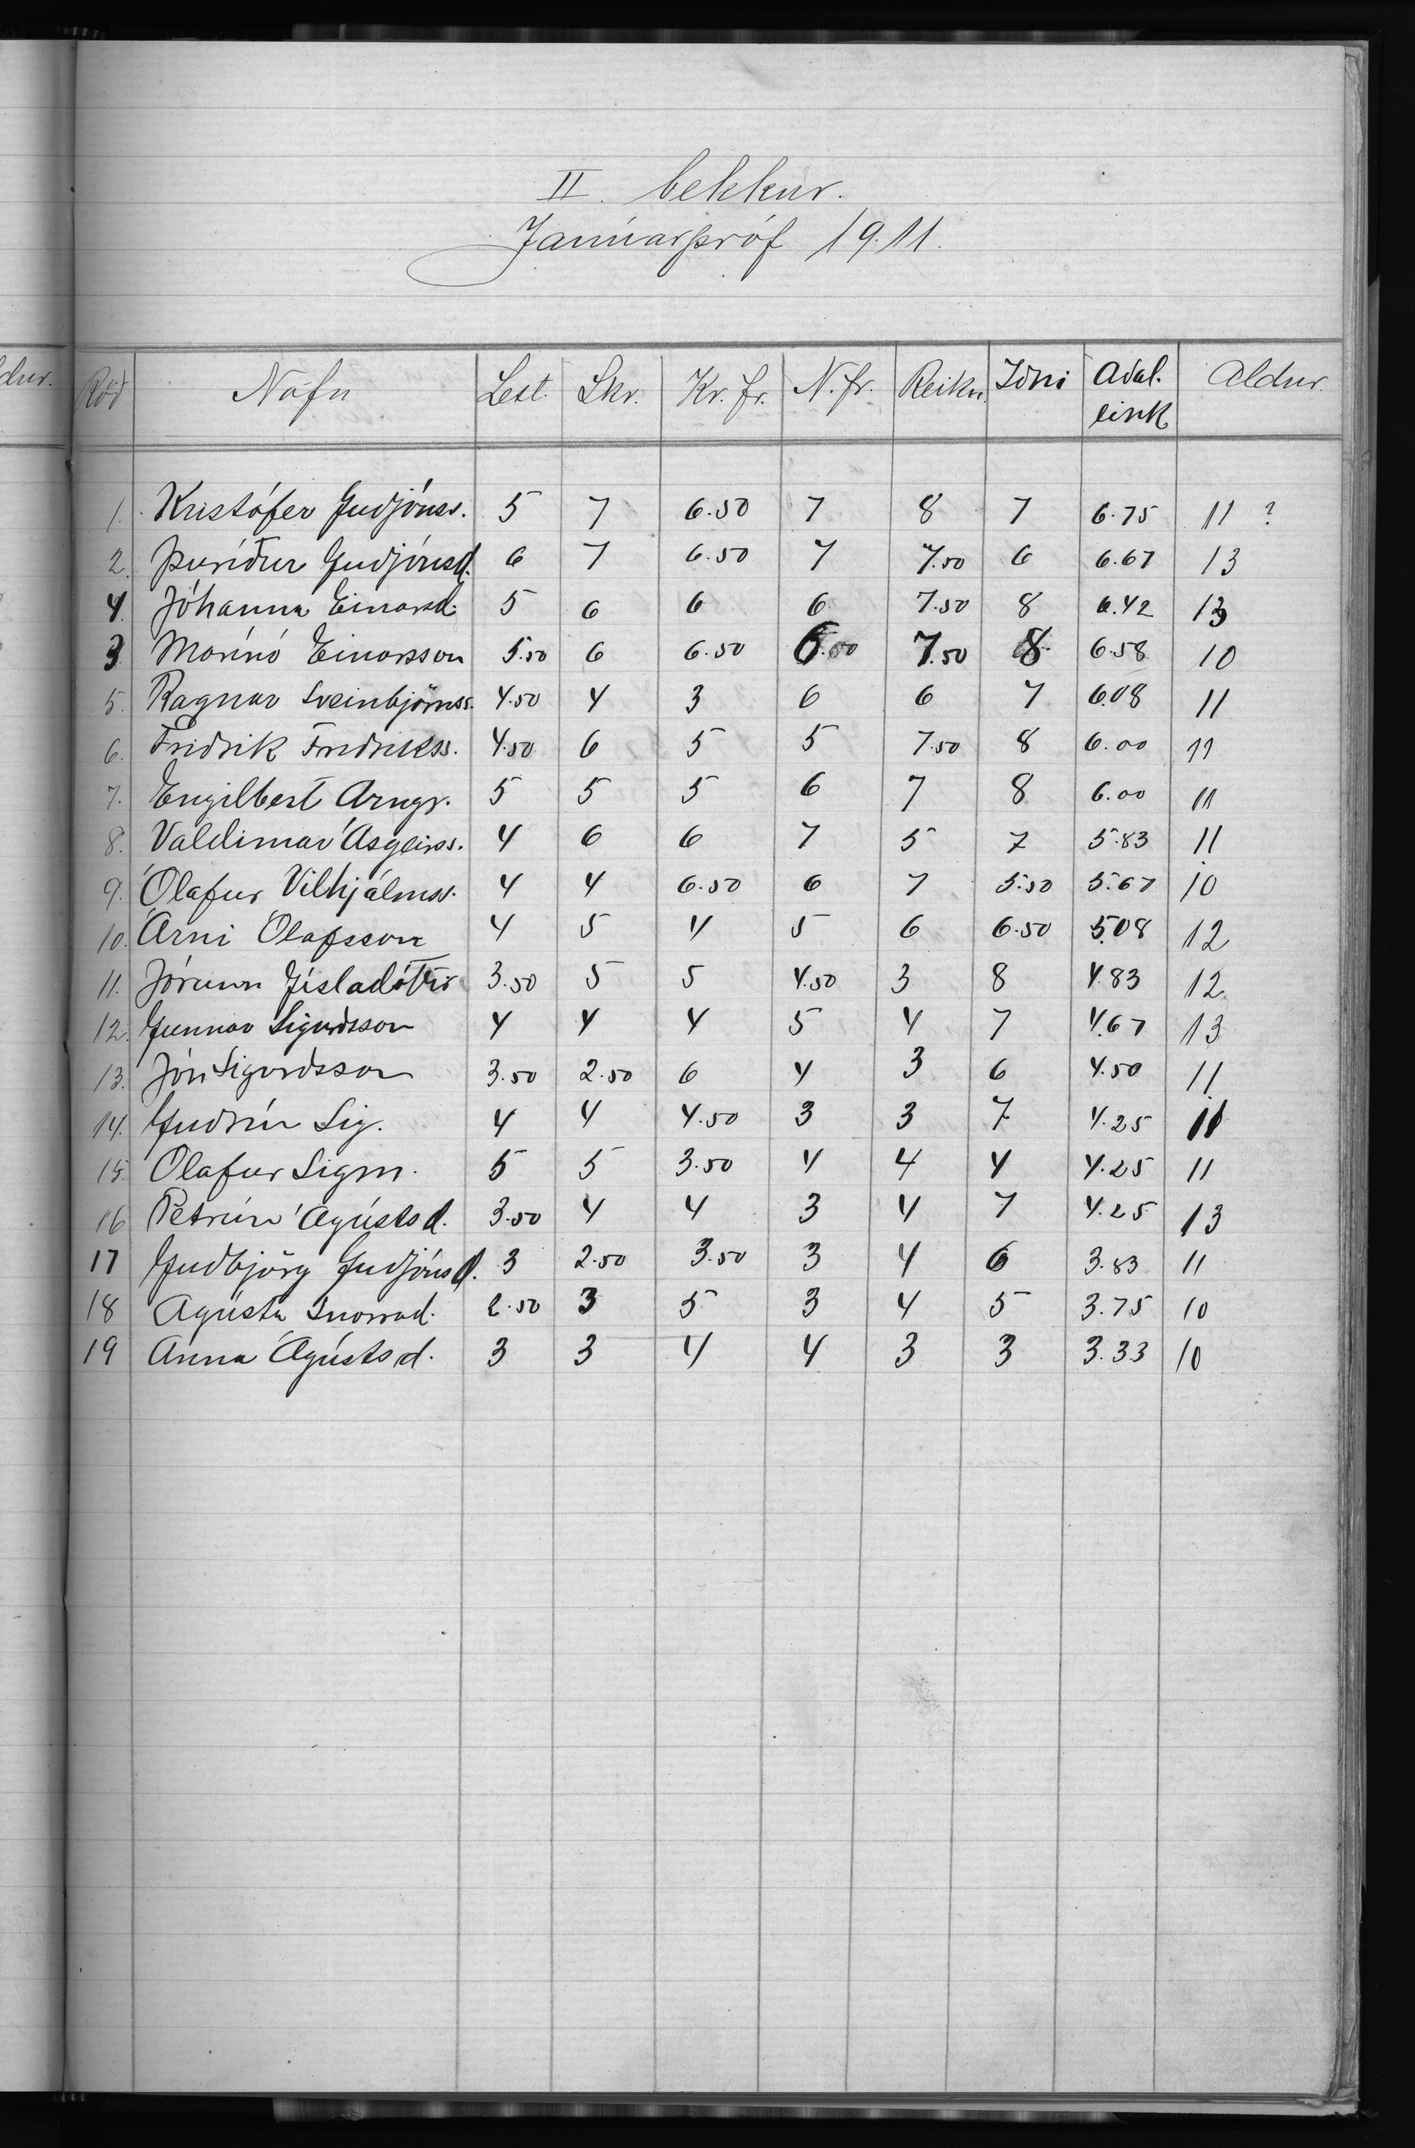 II. bekkur.
Janúarpróf 1911.
dur. Röð Nöfn Lest. Skr. Kr. fr. N. fr. Reikn. Iðni Aðal. eink Aldur.
1. Kristófer Guðjónss. 5 7 6.50 7 8 7 6.75 11 ?
2. Þuríður Guðjónsd. 6 7 6.50 7 7.50 6 6.67 13
4. Jóhanna Einarsd. 5 6 6 6 7.50 8 6.42 13
3 Marínó Einarsson 5.50 6 6.50 6.00 7.50 8 6.58 10
5. Ragnar Sveinbjörnss. 4.50 4 3 6 6 7 6.08 11
6. Friðrik Friðrikss. 4.50 6 5 5 7.50 8 6.00 11
7. Engilbert Arngr. 5 5 5 6 7 8 6.00 11
8. Valdimar Ásgeirss. 4 6 6 7 5 7 5.83 11
9. Ólafur Vilhjálmss. 4 4 6.50 6 7 5.50 5.67 10
10. Árni Ólafsson 4 5 4 5 6 6.50 5.08 12
11. Jórunn Gísladóttir 3.50 5 5 4.50 3 8 4.83 12
12. Gunnar Sigurdsson 4 4 4 5 4 7 4.67 13
13. Jón Sigurdsson 3.50 2.50 6 4 3 6 4.50 11
14. Gudrún Sig. 4 4 4.50 3 3 7 4.25 11
15. Ólafur Sigm. 5 5 3.50 4 4 4 4.25 11
16 Petrún Ágústsd. 3.50 4 4 3 4 7 4.25 13
17 Gudbjörg Gudjónsd. 3 2.50 3.50 3 4 6 3.83 11
18 Ágústa Snorrad. 2.50 3 5 3 4 5 3.75 10
19 Anna Ágústsd. 3 3 4 4 3 3 3.33 10